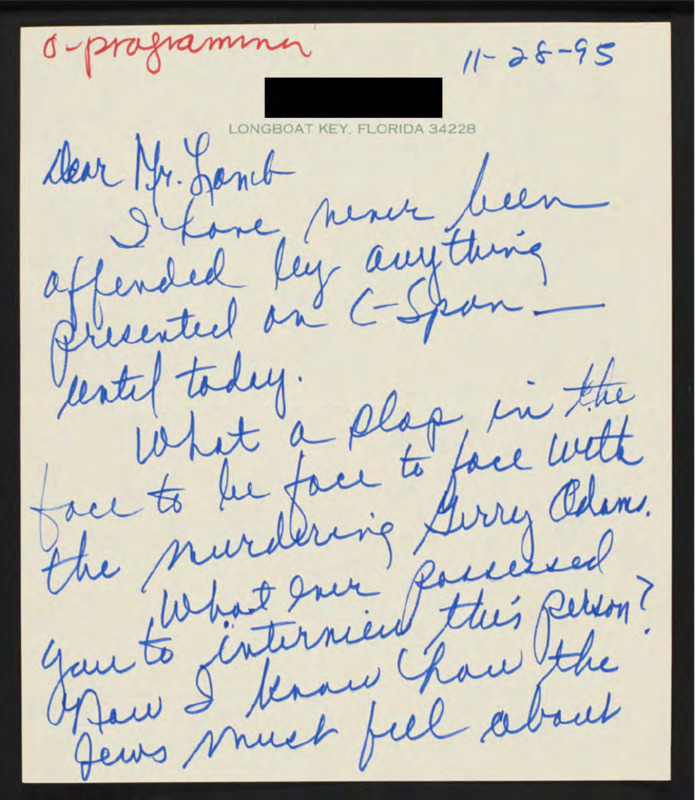 o-programmer
11-28-95
LONGBOAT KEY, FLORIDA 34228
Dear Mr. Lamb
I have never been
offended by anything
presented on C-Span —
until today.
What a slap in the
face to be face to face with
the murdering Gerry Adams.
What ever possessed
you to interview this person?
Now I know how the
Jews must feel about